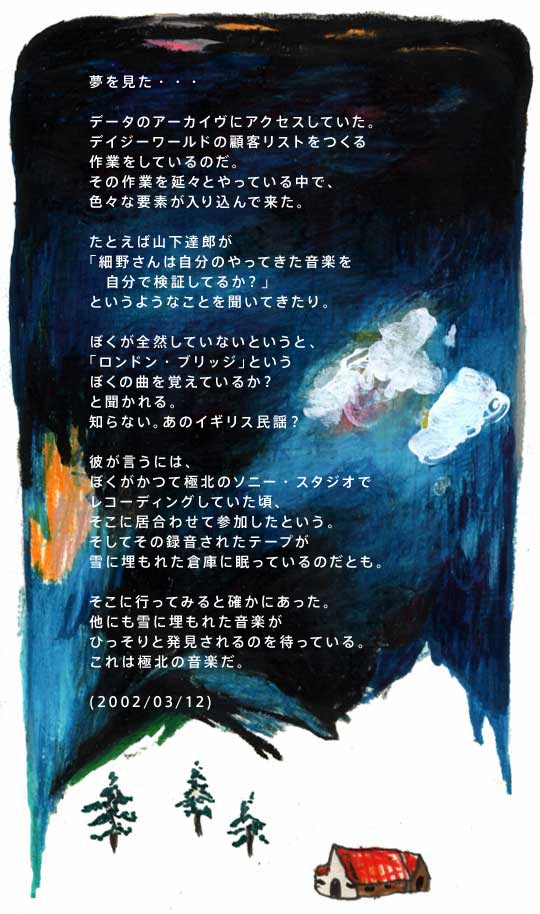 夢を見た・・・
データのアーカイヴにアクセスしていた。
デイジーワールドの顧客リストをつくる
作業をしているのだ。
その作業を延々とやっている中で、
色々な要素が入り込んで来た。
たとえば山下達郎が
「細野さんは自分のやってきた音楽を
自分で検証してるか？」
というようなことを聞いてきたり。
ぼくが全然していないというと、
「ロンドン・ブリッジ」という
ぼくの曲を覚えているか？
と聞かれる。
知らない。あのイギリス民謡？
彼が言うには、
ぼくがかつて極北のソニー・スタジオで
レコーディングしていた頃、
そこに居合わせて参加したという。
そしてその録音されたテープが
雪に埋もれた倉庫に眠っているのだとも。
そこに行ってみると確かにあった。
他にも雪に埋もれた音楽が
ひっそりと発見されるのを待っている。
これは極北の音楽だ。
(2002/03/12)